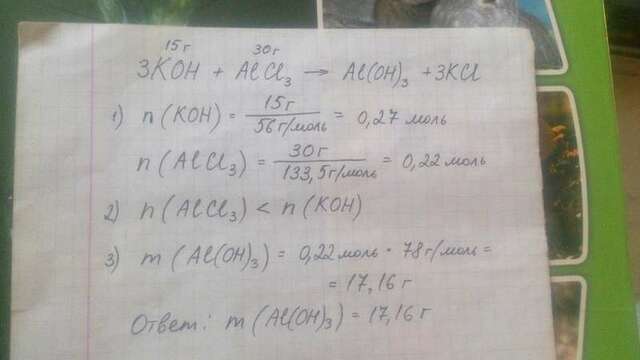 15г 30г
3KOH + AlCl₃ → Al(OH)₃ + 3KCl
1) n(KOH) = 15г / 56г/моль = 0,27 моль
n(AlCl₃) = 30г / 133,5г/моль = 0,22 моль
2) n(AlCl₃) < n(KOH)
3) m(Al(OH)₃) = 0,22 моль · 78г/моль =
= 17,16 г
Ответ: m(Al(OH)₃) = 17,16 г